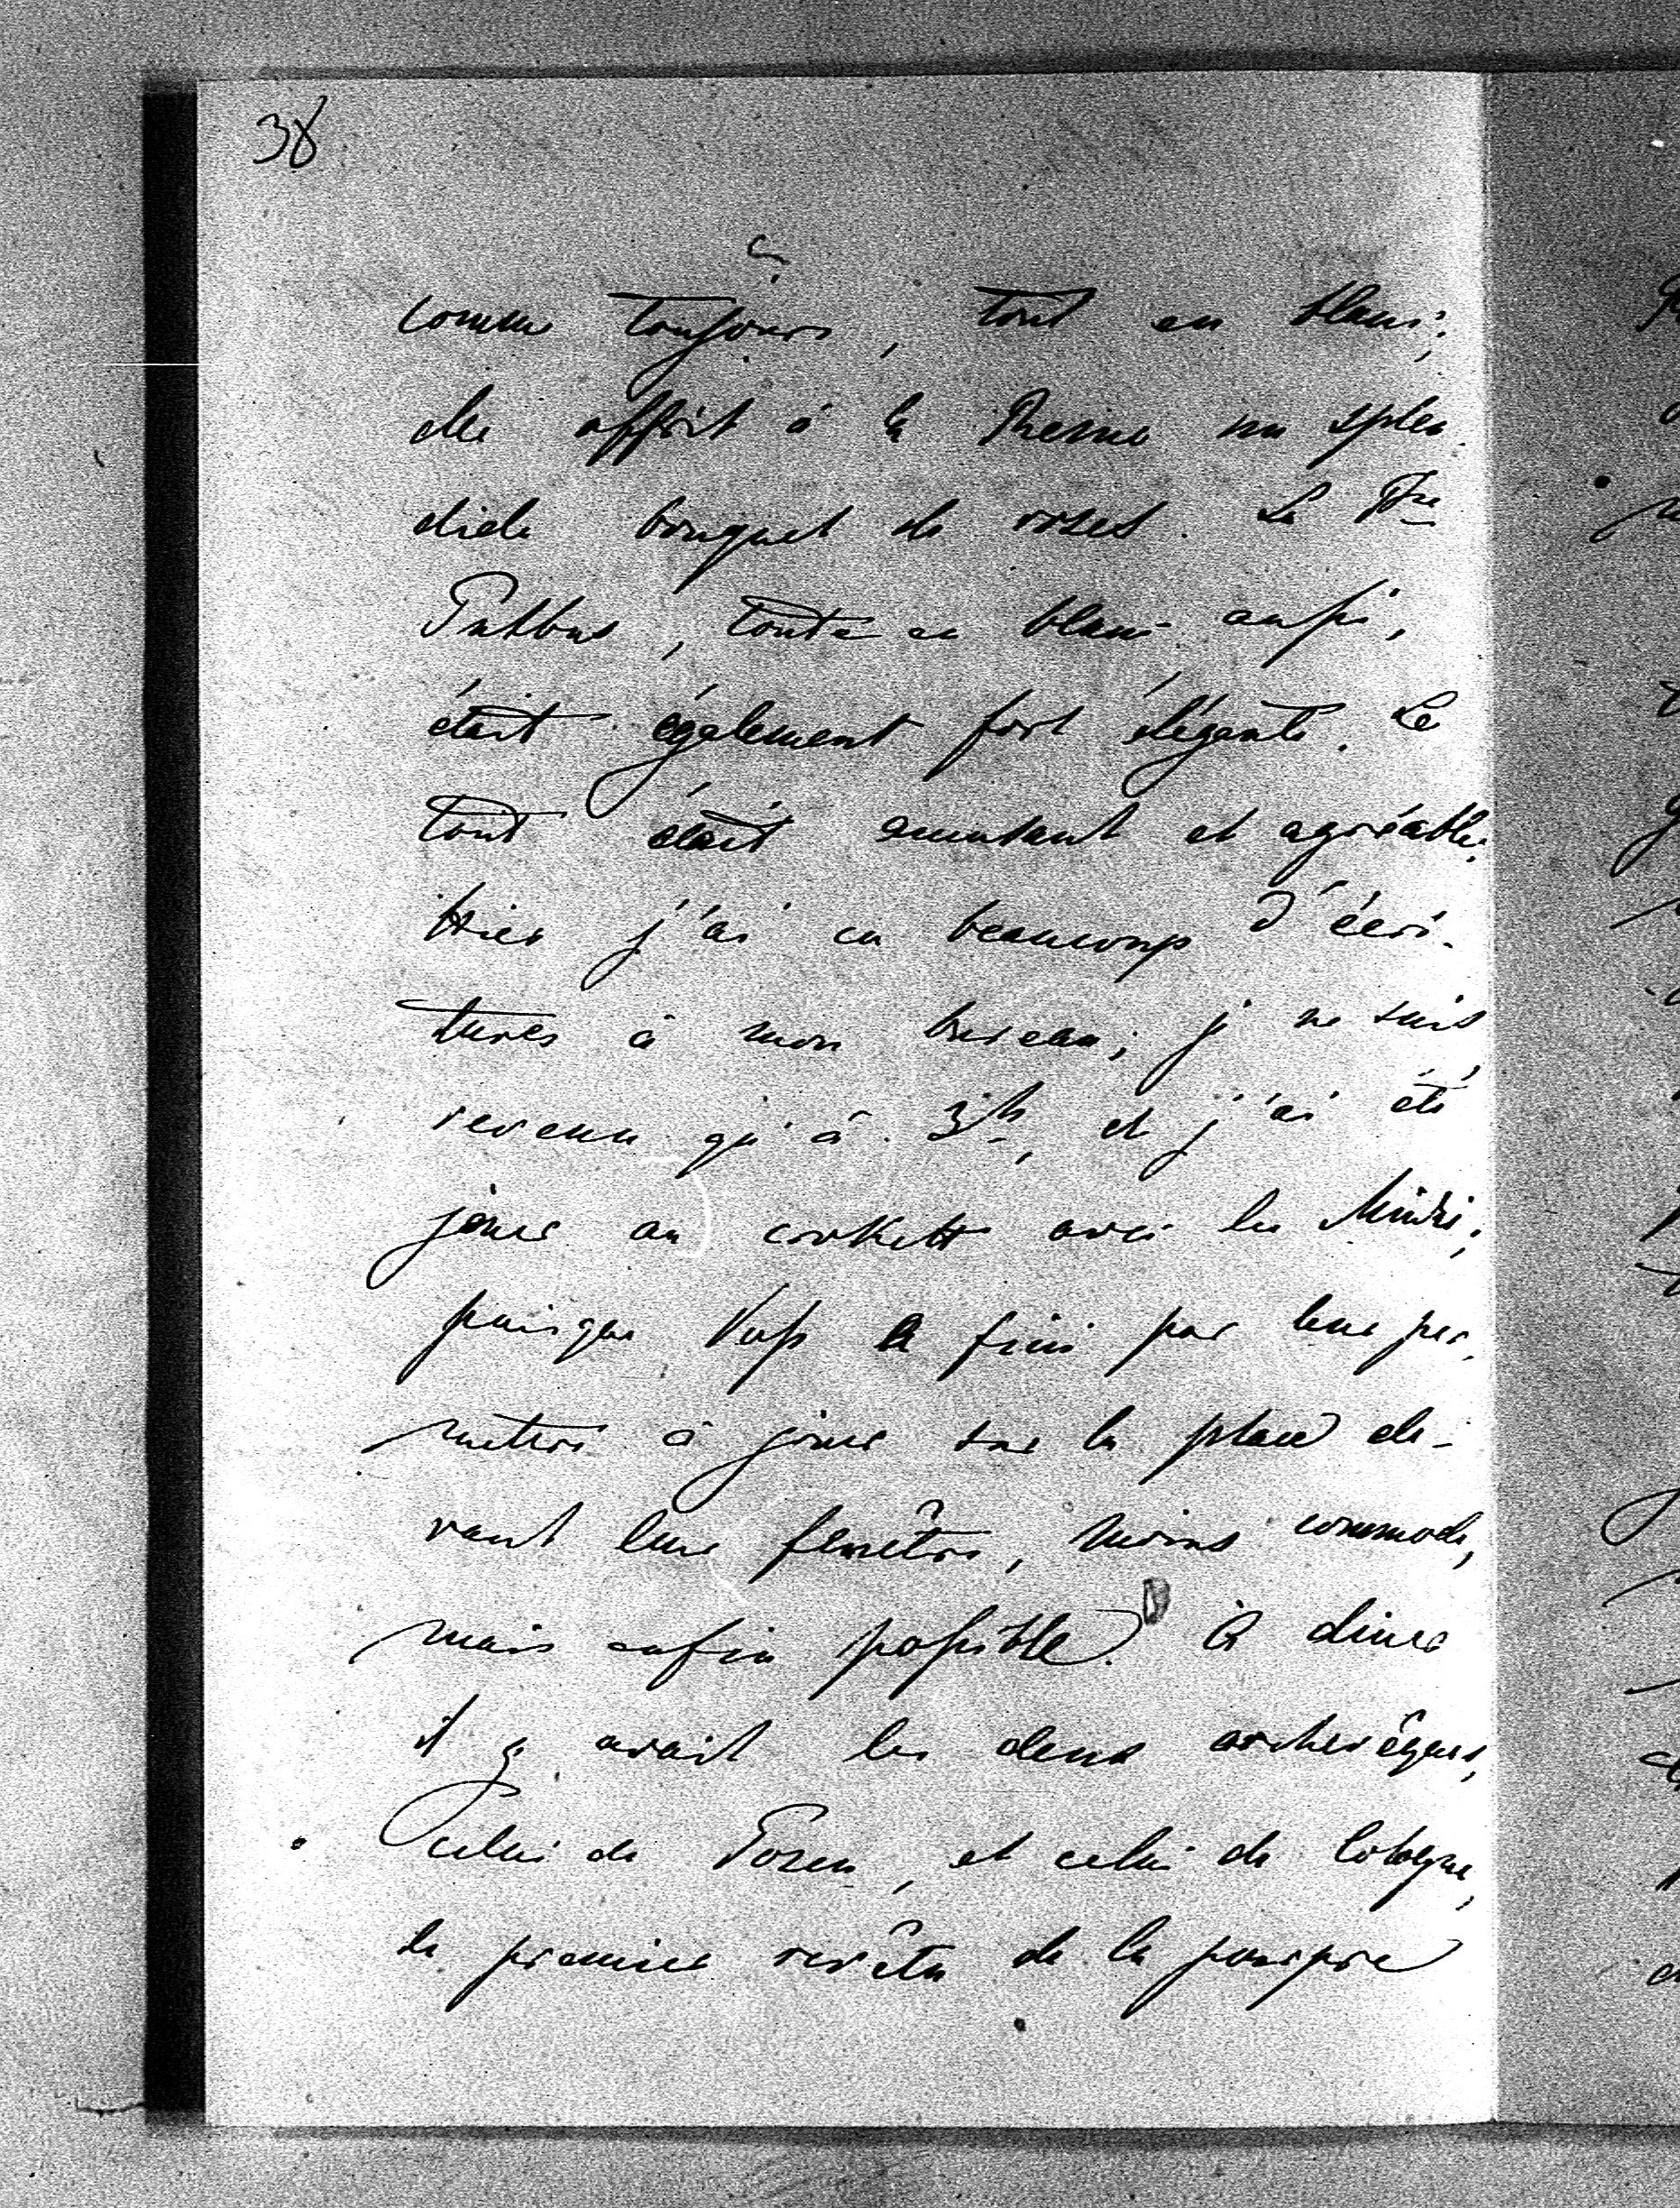 38
comme toujours, tout en blanc;
elle offrit à la Reine un splen-
dide bouquet de roses. La Pce
Putbus, toute en blanc aussi,
était également fort élégante. Le
tout était amusant et agréable.
Hier j'ai eu beaucoup d'écri-
tures à mon bureau; je ne suis
revenu qu'à 3h, et j'ai été
jouer au crokett avec les
puisque a fini par leur per-
mettre à jouer sur la place de-
vant leur fenêtre, moins commode,
mais enfin possible. A diner
il y avait les deux archevêques,
celui de Posen, et celui de Cologne,
le premier revêtu de la pourpre